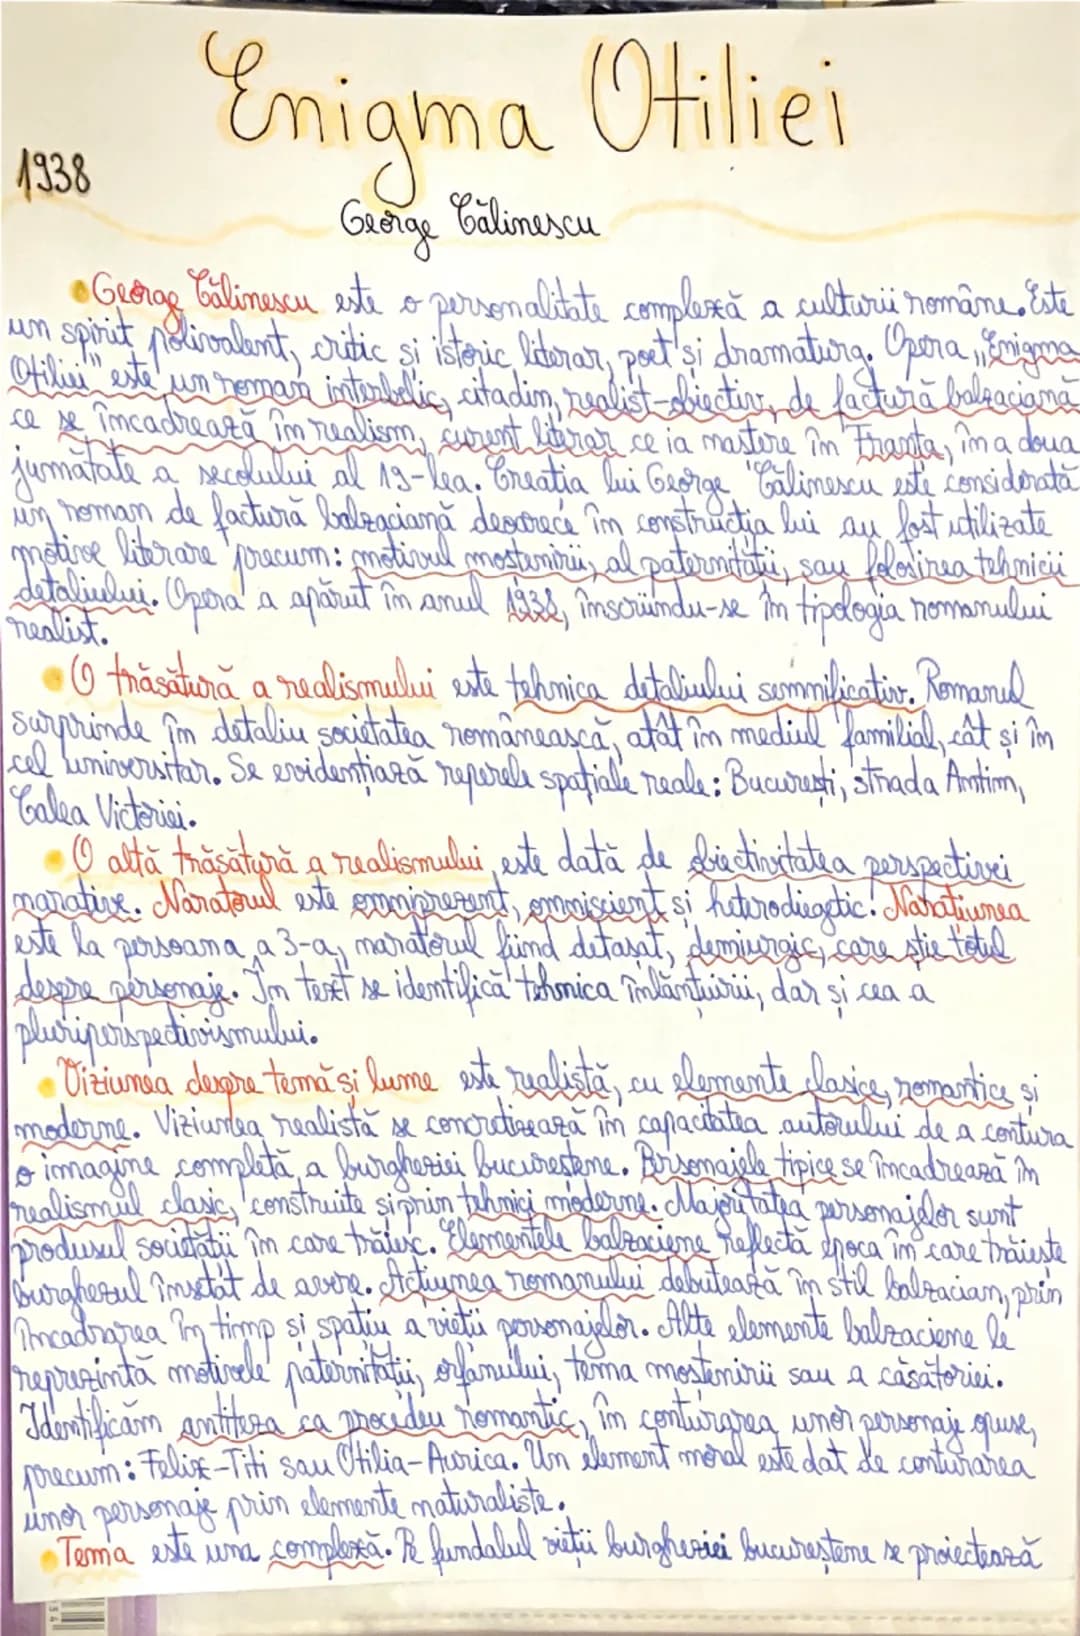 Enigma Otiliei
1938
George Călinescu
George Călinescu este o personalitate complexă a culturii române. Este
un spirit polivalent, critic și istoric literar, poet și dramaturg. Opera „Enigma
Otiliei" este un roman interbelic, citadin, realist-obiectiv, de factură balzaciană
ce se încadrează în realism, curent literar ce ia naștere în Franța, în a doua
jumătate a secolului al 19-lea. Creația lui George Călinescu este considerată
un roman de factură balzaciană deoarece în construcția lui au fost utilizate
motive literare precum: motivul moștenirii, al paternității, sau folosirea tehnicii
detaliului. Opera a apărut în anul 1938, înscriindu-se în tipologia romanului
realist.
O trăsătură a realismului este tehnica detaliului semnificativ. Romanul
surprinde în detaliu societatea românească, atât în mediul familial, cât și în
cel universitar. Se evidențiază reperele spațiale reale: București, strada Antim,
Calea Victoriei.
O altă trăsătură a realismului este dată de obiectivitatea perspectivei
narative. Naratorul este omniprezent, omniscient și heterodiegetic. Narațiunea
este la persoana a 3-a, naratorul fiind detașat, demiurgic, care știe totul
despre personaje. În text se identifică tehnica înlănțuirii, dar și cea a
pluriperspectivismului.
Viziunea despre temă și lume este realistă, cu elemente clasice, romantice și
moderne. Viziunea realistă se concretizează în capacitatea autorului de a contura
o imagine completă a burgheziei bucureștene. Personajele tipice se încadrează în
realismul clasic, construite și prin tehnici moderne. Majoritatea personajelor sunt
produsul societății în care trăiesc. Elementele balzaciene reflectă epoca în care trăiește
burghezul însetat de avere. Acțiunea romanului debutează în stil balzacian, prin
încadrarea în timp și spațiu a vieții personajelor. Alte elemente balzaciene le
reprezintă motivele paternității, orfanului, tema moștenirii sau a căsătoriei.
Identificăm antiteza ca procedeu romantic, în conturarea unor personaje opuse,
precum: Felix-Titi sau Otilia-Aurica. Un element moral este dat de conturarea
unor personaje prin elemente naturaliste.
Tema este una complexă. Pe fundalul vieții burgheziei bucureștene se proiectează